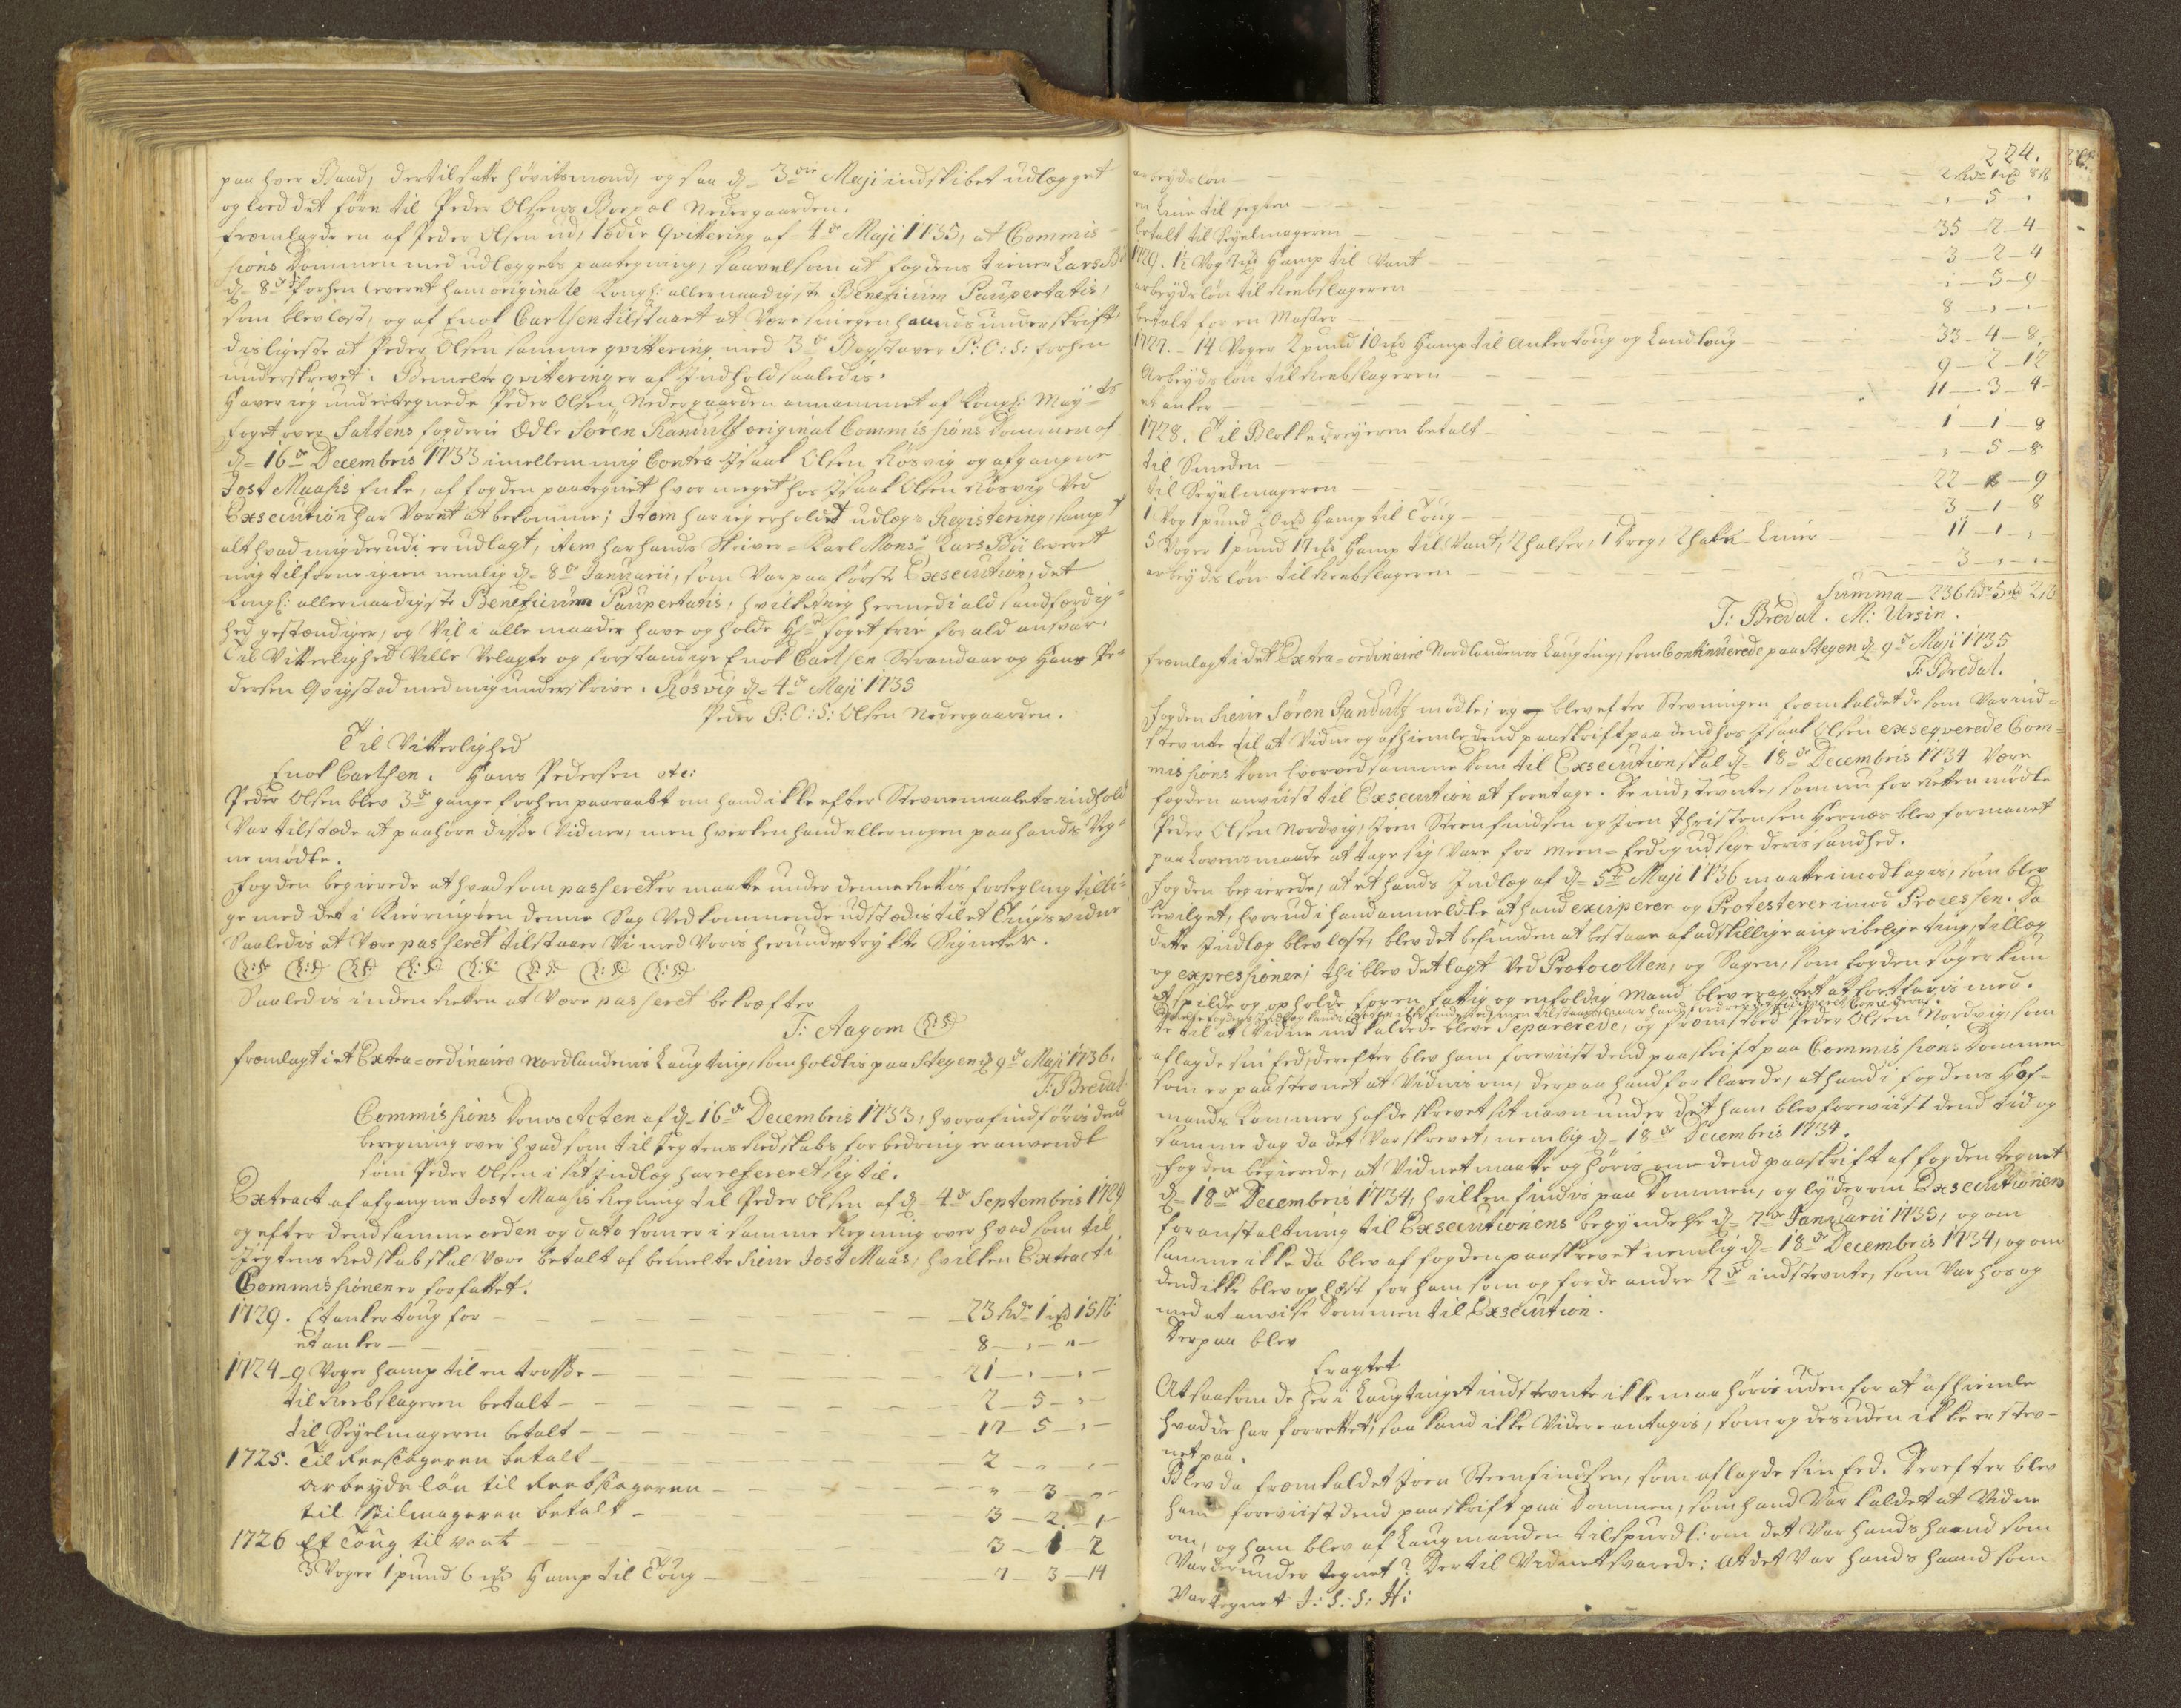 paa hver Baad, dertil satte hövitsmænd, og saa d. 3die Maji indskibet udlægget
og lod det före til Peder Olsens Boepæl Nedergaarden.
fremlagde en af Peder Olsen ud, qvittering af 4de Maji 1735, at Commis-
sions Dommen med udlæggets paategning, saavelsom at fogdens tiener Lars Bü
d. 8de forhen leveret ham originale Kongl: allernaadigste Beneficium Paupertatis,
som blev læst, og af Enok Carlsen tilstaaet at være sin egen haands underskrift,
disligeste at Peder Olsen samme qvittering med 3de Bogstaver P: O: S: forhen
underskrevet. Bemelte qvittering er af Indhold saaledis.
Haver ieg undertegnede Peder Olsen Nedergaarden annammet af Kongl: Mayts
foget over Saltens fogderie Ædle Sören Randulf original Commissions Dommen af
d. 16de Decembris 1733 imellem mig Contra Isaak Olsen Rösvig og afgangne
Jost Maasis Enke, af fogden paategnet hvor meget hos Isaak Olsen Rösvig ved
Exsecution har været at bekomme; Item har ieg erholdet udlægs Registering, sampt
alt hvad mig derudi er udlagt, item har hands Skriver-Karl Monsr Lars Bü leveret
mig tilforne igien nemlig d. 8de Januarii, som var paa förste Exsecution, det
Kongl: allernaadigste Beneficium Paupertatis, hvilket ieg hermed i ald sandfærdig-
hed gestændiger, og vil i alle maader have og holde Hr foget frie for ald ansvar.
Til Vitterlighed ville velagte og forstandige Enok Carlsen Strandaar og Hans Pe-
dersen Qvigstad med mig underskrive. Rösvig d. 4de Maji 1735
Peder P: O: S: Olsen Nedergaarden.
Til Vitterlighed
Enok Carlsen. Hans Pedersen etc:
Peder Olsen blev 3de gange forhen paaraabt om hand ikke efter Stevnemaalets indhold
var tilstæde at paahöre disse Vidner, men hverken hand eller nogen paa hands Veg-
ne mödte.
Fogden begierede at hvad som passeret er maatte under denne Rettis forsegling tilli-
ge med det i Kierringöen denne Sag vedkommende udstædis til et Tingsvidne
Saaledis at være passeret tilstaaer Vi med Voris herundertrykte Signeter.
(L:S) (L:S) (L:S) (L:S) (L:S) (L:S) (L:S) (L:S)
Saaledis inden Retten at være passeret bekræfter
T: Aagom (L:S)
fremlagt i et Extra-ordinaire Nordlandenis Laugting, som holdtis paa Stegen d. 9de Maji 1736.
T: Bredal.
Commissions Doms Acten af d. 16de Decembris 1733, hvoraf indföris dend
beregning over hvad som til Jegtens Redskabs forbedring er anvendt
som Peder Olsen i sit Indlæg har refereret sig til.
Extract af afgangne Jost Maasis Regning til Peder Olsen af d. 4de Septembris 1729
og efter dend samme orden og dato som er i samme Regning over hvad som til
Jegtens Redskab skal være betalt af bemelte Sieur Jost Maas, hvilken Extract i
Commissionen er forfattet.
1729. Et ankertoug for — 23 Rdr 1 mk 15 ß:
et anker — 8 — " — "
1724 – 9 Voger hamp til en trosse — 21 — " — "
til Reebslageren betalt — 2 — 5 — "
til Seyelmageren betalt — 17 — 5 — "
1725. Til Reebslageren betalt — 2 — " — "
arbeydslön til Reebslageren — " — 3 — "
til Seilmageren betalt — 3 — 2 — 1
1726 Et Toug til vant — 3 — 1 — 2
3 Voger 1 pund 6 mk Hamp til Toug — 7 — 3 — 14
224.
arbeydslön — 2 Rdr 1 mk 8 ß
en Line til jegten — " — 5 — "
betalt til Seyelmageren — 35 — 2 — 4
1729. 1½ Vog 7 mk Hamp til Vant — 3 — 2 — 4
arbeydslön til Reebslageren — " — 5 — 9
betalt for en Master — 8 — " — "
1727. – 14 Voger 2 pund 10 mk Hamp til Ankertoug og Landtoug — 33 — 4 — 8
Arbeydslön til Reebslageren — 9 — 2 — 12
et anker — 11 — 3 — 4
1728. Til Blokkedreyeren betalt — 1 — 1 — 8
til Smeden — " — 5 — 8
til Seyelmageren — 22 — — 9
1 Vog 1 pund 20 mk Hamp til Toug — 3 — 1 — 8
5 Voger 1 pund 17 mk Hamp til Vant, 2 halser, 1 Dreg, 2 Liner — 11 — 1 — "
arbeydslön til Reebslageren — 3 — " — "
Summa — 236 Rdr 5 mk 2 ß
T: Bredal. M: Ursin.
fremlagt i det Extra-ordinaire Nordlandenes Laugting, som Continuerede paa Stegen d. 9de Maji 1735
T: Bredal.
Fogden Sieur Sören Randulf mödte; og blev efter Stevningen fremkaldet de som var ind-
stevnte til at Vidne og afhiemle dend paaskrift paa dend hos Isaak Olsen exseqverede Com-
missions dom hvorved samme dom til Exsecution skal d. 18de Decembris 1734 være
fogden anviist til Exsecution at foretage. De indstevnte, som nu for Retten mödte
Peder Olsen Nordvig, Joen Steenfindsen og Joen Christensen Hernæs blev formanet
paa Lovens maade at tage sig vare for Meen-Eed og udsige deris sandhed.
Fogden begierede, at et hands Indlæg af d. 5te Maji 1736 maatte imodtagis, som blev
bevilget, hvorudi hand anmeldte at hand exciperer og Protesterer imod Processen. Da
dette Indlæg blev læst, blev det befunden at bestaae af adskillige angribelige ting, tillæg
og expressioner; thi blev det lagt ved Protocollen, og Sagen, som fogden söger kun
at spilde og opholde for en fattig og enfoldig Mand, blev eragtet at fortfaris med.
te til at Vidne indkaldede bleve Separerede, og fremstoed Peder Olsen Nordvig, som
aflagde sin Eed, derefter blev ham foreviist dend paaskrift paa Commissions Dommen
som er paastevnet at Vidnis om, derpaa hand forklarede, at hand i fogdens Hof-
mands Kammer hafde skrevet sit navn under det ham blev foreviist dend tid og
samme dag da det var skrevet, nemlig d. 18de Decembris 1734.
Fogden begierede, at Vidnet maatte og höris om dend paaskrift af fogden tegnet
d. 18de Decembris 1734, hvilken findis paa Dommen, og lyder om Exsecutionens
foranstaltning til Exsecutionens begyndelse d. 7de Januarii 1735, og om
samme ikke da blev af fogden paaskrevet nemlig d. 18de Decembris 1734, og om
dend ikke blev oplæst for ham som og for de andre 2de indstevnte, som var hos og
med at anvise Dommen til Exsecution.
Derpaa blev
Eragtet
At saasom de her i Laugtinget indstevnte ikke maa höris uden for at afhiemle
hvad de har forrettet, saa kand ikke Videre antagis, som og desuden ikke er stev-
net paa.
Blev da fremkaldet Joen Steenfindsen, som aflagde sin Eed. Derefter blev
ham foreviist dend paaskrift paa Dommen, som hand var kaldet at Vidne
om, og ham blev af Laugmanden tilspurdt: om det var hands haand som
var der under tegnet? Dertil Vidnet svarede: At det var hands haand som
var tegnet J: S: S: H: